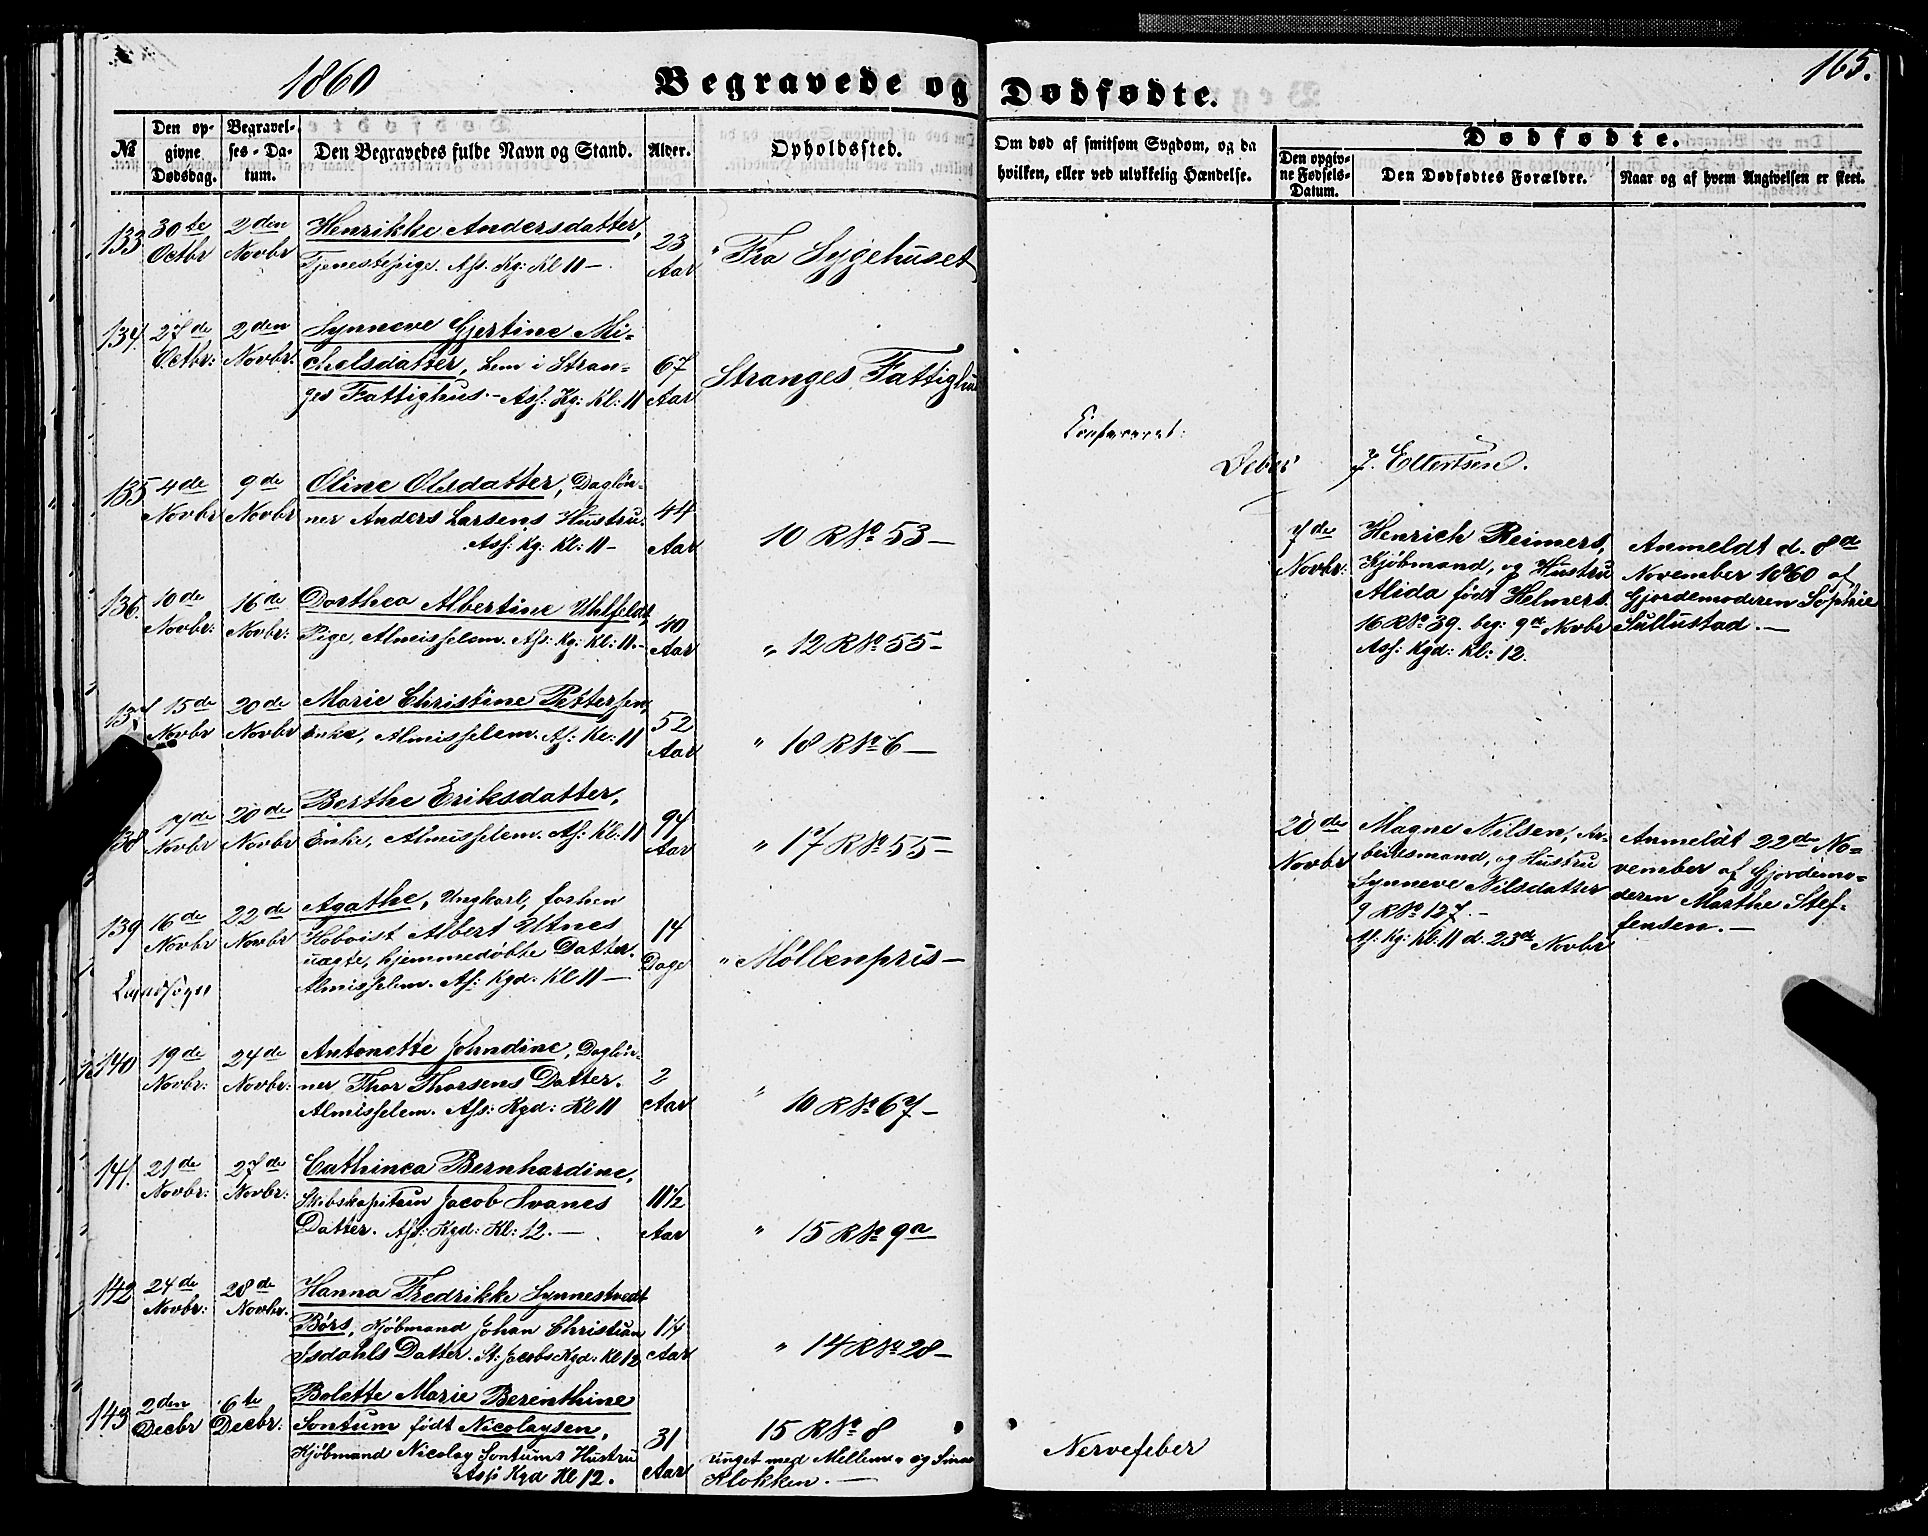 1860
Begravede og Dødfødte.
165.
№
Den op-
givne
Dødsdag.
Begravel-
ses-Da-
tum.
Den Begravedes fulde Navn og Stand.
Alder.
Opholdssted.
Om død af smitsom Sygdom, og da
hvilken, eller ved ulykkelig Hændelse.
Dødfødte.
Den opgiv-
ne Fødsels-
Datum.
Den Dødfødtes Forældre.
Naar og af hvem Angivelsen er skeet.
133
30te
Octbr
2den
Novbr
Henrikke Andersdatter,
Tjenestepige. Ass. Kg: Kl 11 –
23
Aar
" Fra Sygehuset
134.
27de
Octbr:
2den
Novbr:
Synneve Gjertine Mi-
chelsdatter, Lem i Stran-
ges Fattighus. – Ass: Kg: Kl: 11
67
Aar
Stranges Fattighus
Confereret:
J. Ellertsen.
135
4de
Novbr
9de
Novbr
Oline Olsdatter, Dagløn-
ner Anders Larsens Hustru.
Ass: Kg: Kl: 11 –
44
Aar
10 R № 53 –
136.
10de
Novbr:
16de
Novbr:
Dorthea Albertine Uhlfeldt,
Pige, Almisselem. Ass: Kg: Kl: 11. –
40
Aar
" 12 R № 55 –
137
15de
Novbr
20de
Novbr
Marie Christine Pettersen,
Enke, Almisselem. As: Kl: 11
52
Aar
" 18 R № 6 –
138
17de
Novbr
20de
Novbr
Berthe Eriksdatter,
Enke, Almisselem. As: Kl: 11
94
Aar
" 17 R № 55 –
139
16de
Novbr
22de
Novbr
Agathe, Ungkarl, forhen
Hoboist Albert Utnes
uægte, hjemmedøbte Datter.
Almisselem. As: Kgd. Kl 11 –
14
Dage
" Møllenpris –
Landsogn
140
19de
Novbr:
24de
Novbr:
Antonette Johndine, Dagløn-
ner Thor Thorsens Datter.
Almisselem. Ass: Kgd: Kl 11
2
Aar
" 10 R № 67 –
141.
21de
Novbr:
27de
Novbr:
Cathinca Bernhardine,
Skibskapitain Jacob Svanes
Datter. Ass: Kgd: Kl: 12. –
11½
Aar
" 15 R № 9a
142
24de
Novbr:
28de
Novbr.
Hanna Fredrikke Synnestvedt
Børs, Kjøbmand Johan Christian
Isdahls Datter. St: Jacobs Kgd: Kl 12
1¼
Aar
" 14 R № 28 –
143
2den
Decbr
6te
Decbr:
Bolette Marie Berenthine
Sontum født Nicolaysen,
Kjøbmand Nicolay Sontums Hustru
Ass: Kgd Kl 12.
31
Aar
15 R № 8
ringet med Mellem- og Smaa
Klokken. –
Nervefeber
7de
Novbr:
Henrich Reimers,
Kjøbmand, og Hustru
Alida født Helmers.
16 R № 39. beg: 9de Novbr
Ass: Kgd: Kl: 12.
Anmeldt d. 8de
November 1860 af
Gjordemoderen Sophie
Sullustad. –
20de
Novbr
Magne Nilsen, Ar-
beidsmand, og Hustru
Synneve Nilsdatter
9 R № 127. –
As: Kg: Kl: 11 d. 23de Novbr
Anmeldt 22de No-
vember af Gjordemo-
deren Marthe Stef-
fensen. –